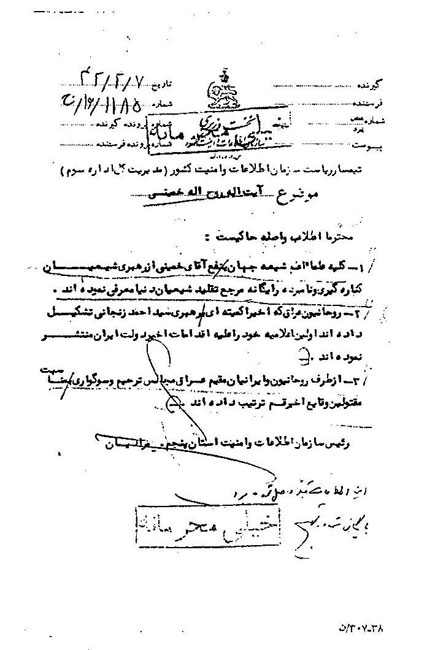 گیرنده
تاریخ ۴۲/۲/۷
فرستنده
شماره ۱۱۸۵/۱۶/
پیوست
شماره پرونده گیرنده
شماره پرونده فرستنده
نخست وزیری
خیلی محرمانه
تیمسار ریاست سازمان اطلاعات و امنیت کشور (مدیریت کل اداره سوم)
موضوع آیت‌اله روح اله خمینی
محترما اطلاب واصله حاکیست :
۱- کلیه علماء شیعه جهان بنفع آقای خمینی از رهبری شیعیان
کناره گیری و نامبرده را یگانه مرجع تقلید شیعیان دنیا معرفی نموده اند .
۲- روحانیون عراق که اخیرا کمیته ای برهبری سید احمد زنجانی تشکیل
داده اند اولین اعلامیه خود را علیه اقدامات اخیر دولت ایران منتشر
نموده اند .
۳- از طرف روحانیون و ایرانیان مقیم عراق مجالس ترحیم و سوگواری بمناسبت
مقتولین وقایع اخیر قم ترتیب داده اند .
رئیس سازمان اطلاعات و امنیت استان پنجم
این اطلاعات
خیلی محرمانه
۳۰۷-۳۸/ن